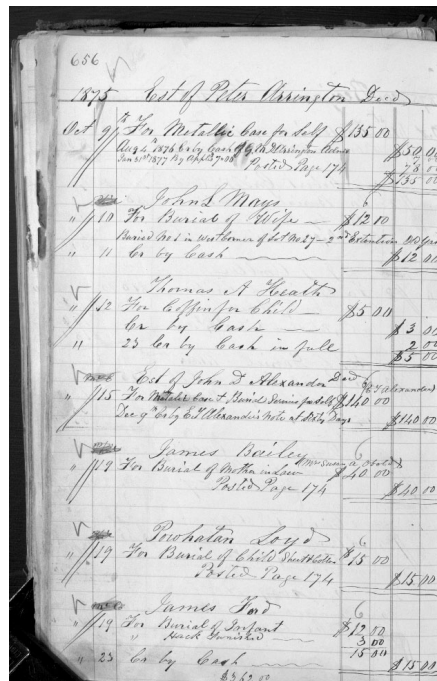 656
1875 Est of Peter Arrington Decd
Oct 9th For Metallic Case for Self $135 00
Aug 4 1876 Cr by Cash of Arrington $50 00
Jan 31st 1877 By 7 00
Posted Page 174 78 00
$135 00
John L Mays
" 10 For Burial of Wife — $12 00
Buried No 1 in West Corner of Lot No 27 – 2nd Extention
" 11 Cr by Cash $12 00
Thomas A Heath
" 12 For Coffin for Child — $5 00
Cr by Cash $3 00
" 23 Cr by Cash in full 2 00
$5 00
Est of John D Alexander Decd
" 15 For Metalic Case & Burial Service for Self $140 00
Dec 9th Cr by E T Alexander's Note at Sixty Days $140 00
James Bailey
" 19 For Burial of Mother in Law (Mrs Susan A $40 00
Posted Page 174 $40 00
Powhatan Loyd
" 19 For Burial of Child $15 00
Posted Page 174 $15 00
James Ford
" 19 For Burial of Infant $12 00
" Hack Furnished 3 00
15 00
" 23 Cr by Cash $15 00
$362 00